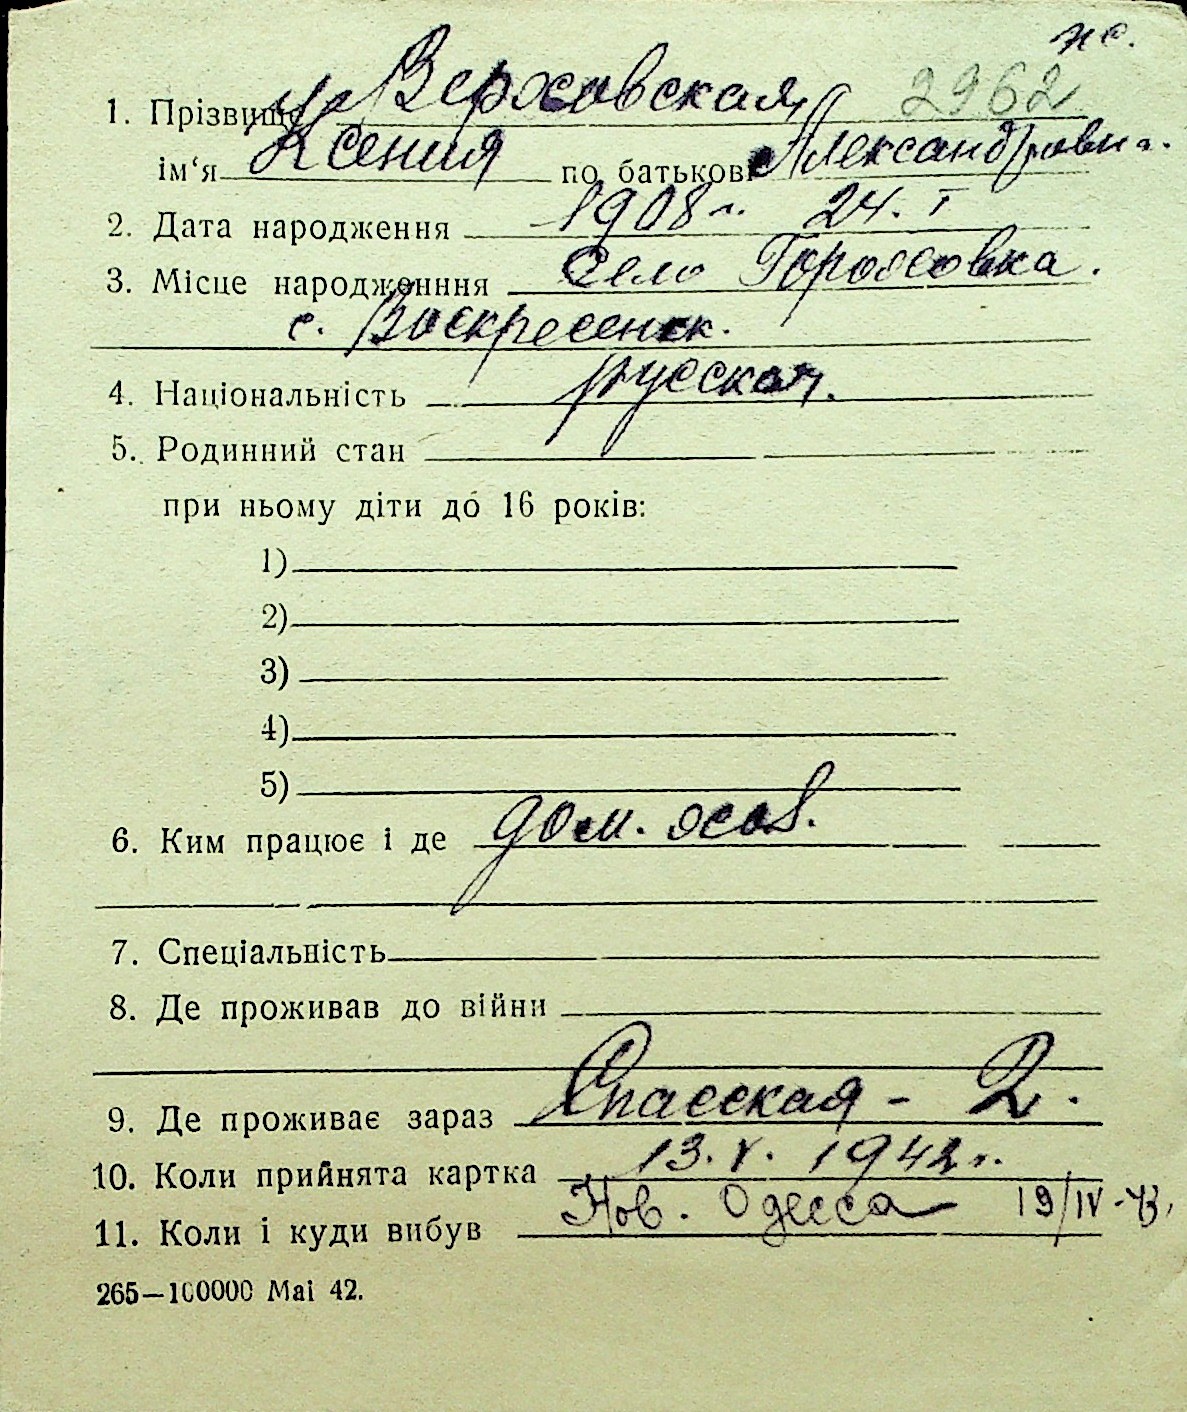 нс.
1. Прізвище Верховская 2962
ім‘я Ксения по батькові Александровна.
2. Дата народження 1908 г. 24. I
3. Місце народженння Село Гороховка.
с. Воскресенск.
4. Національність русская.
5. Родинний стан
при ньому діти до 16 років:
1)
2)
3)
4)
5)
6. Ким працює і де дом. особ.
7. Спеціальність
8. Де проживав до війни
9. Де проживає зараз Спасская - 2.
10. Коли прийнята картка 13. V. 1942 г.
11. Коли і куди вибув Нов. Одесса 19/IV-43,
265—100000 Mai 42.